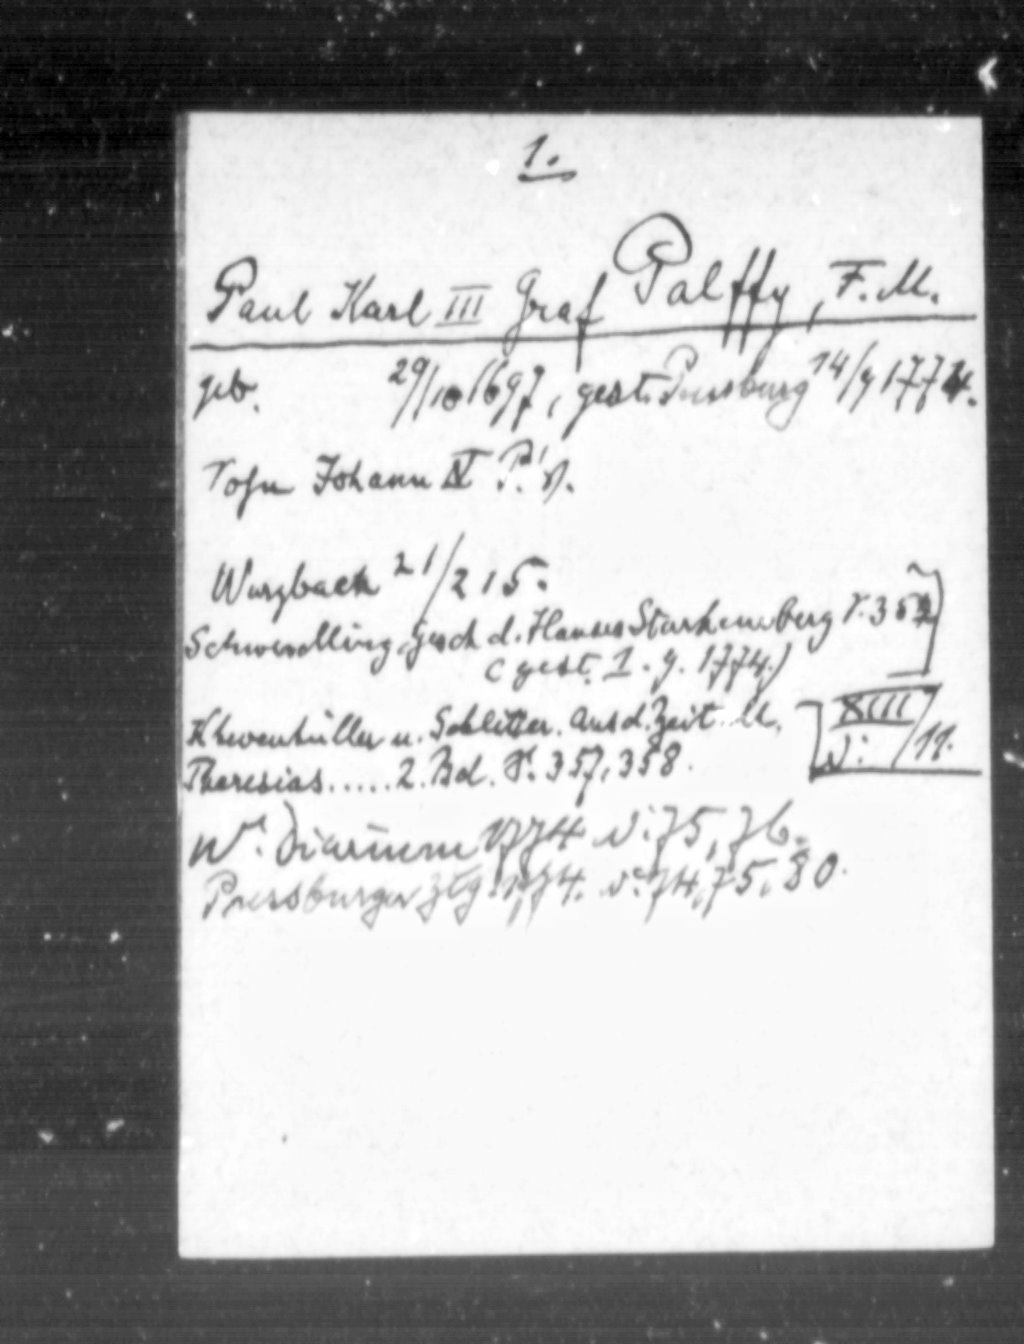 1.
Paul Karl III Graf Palffy, F.M.
geb. 29/10 1697, gest. Pressburg 14/9 1774.
Sohn Johann IV P.'s.
Wurzbach 21/215.
Schwerdling, Gesch d. Hauses Starhemberg S. 352
(gest. 1. 9. 1774.)
Khevenhüller u. Schlitter. Aus d. Zeit M.
Theresias.....2. Bd. S. 357, 358.
XIII/11.
W. Diarium 1774 N: 75, 76.
Pressburger Ztg. 1774. N: 74, 75, 80.